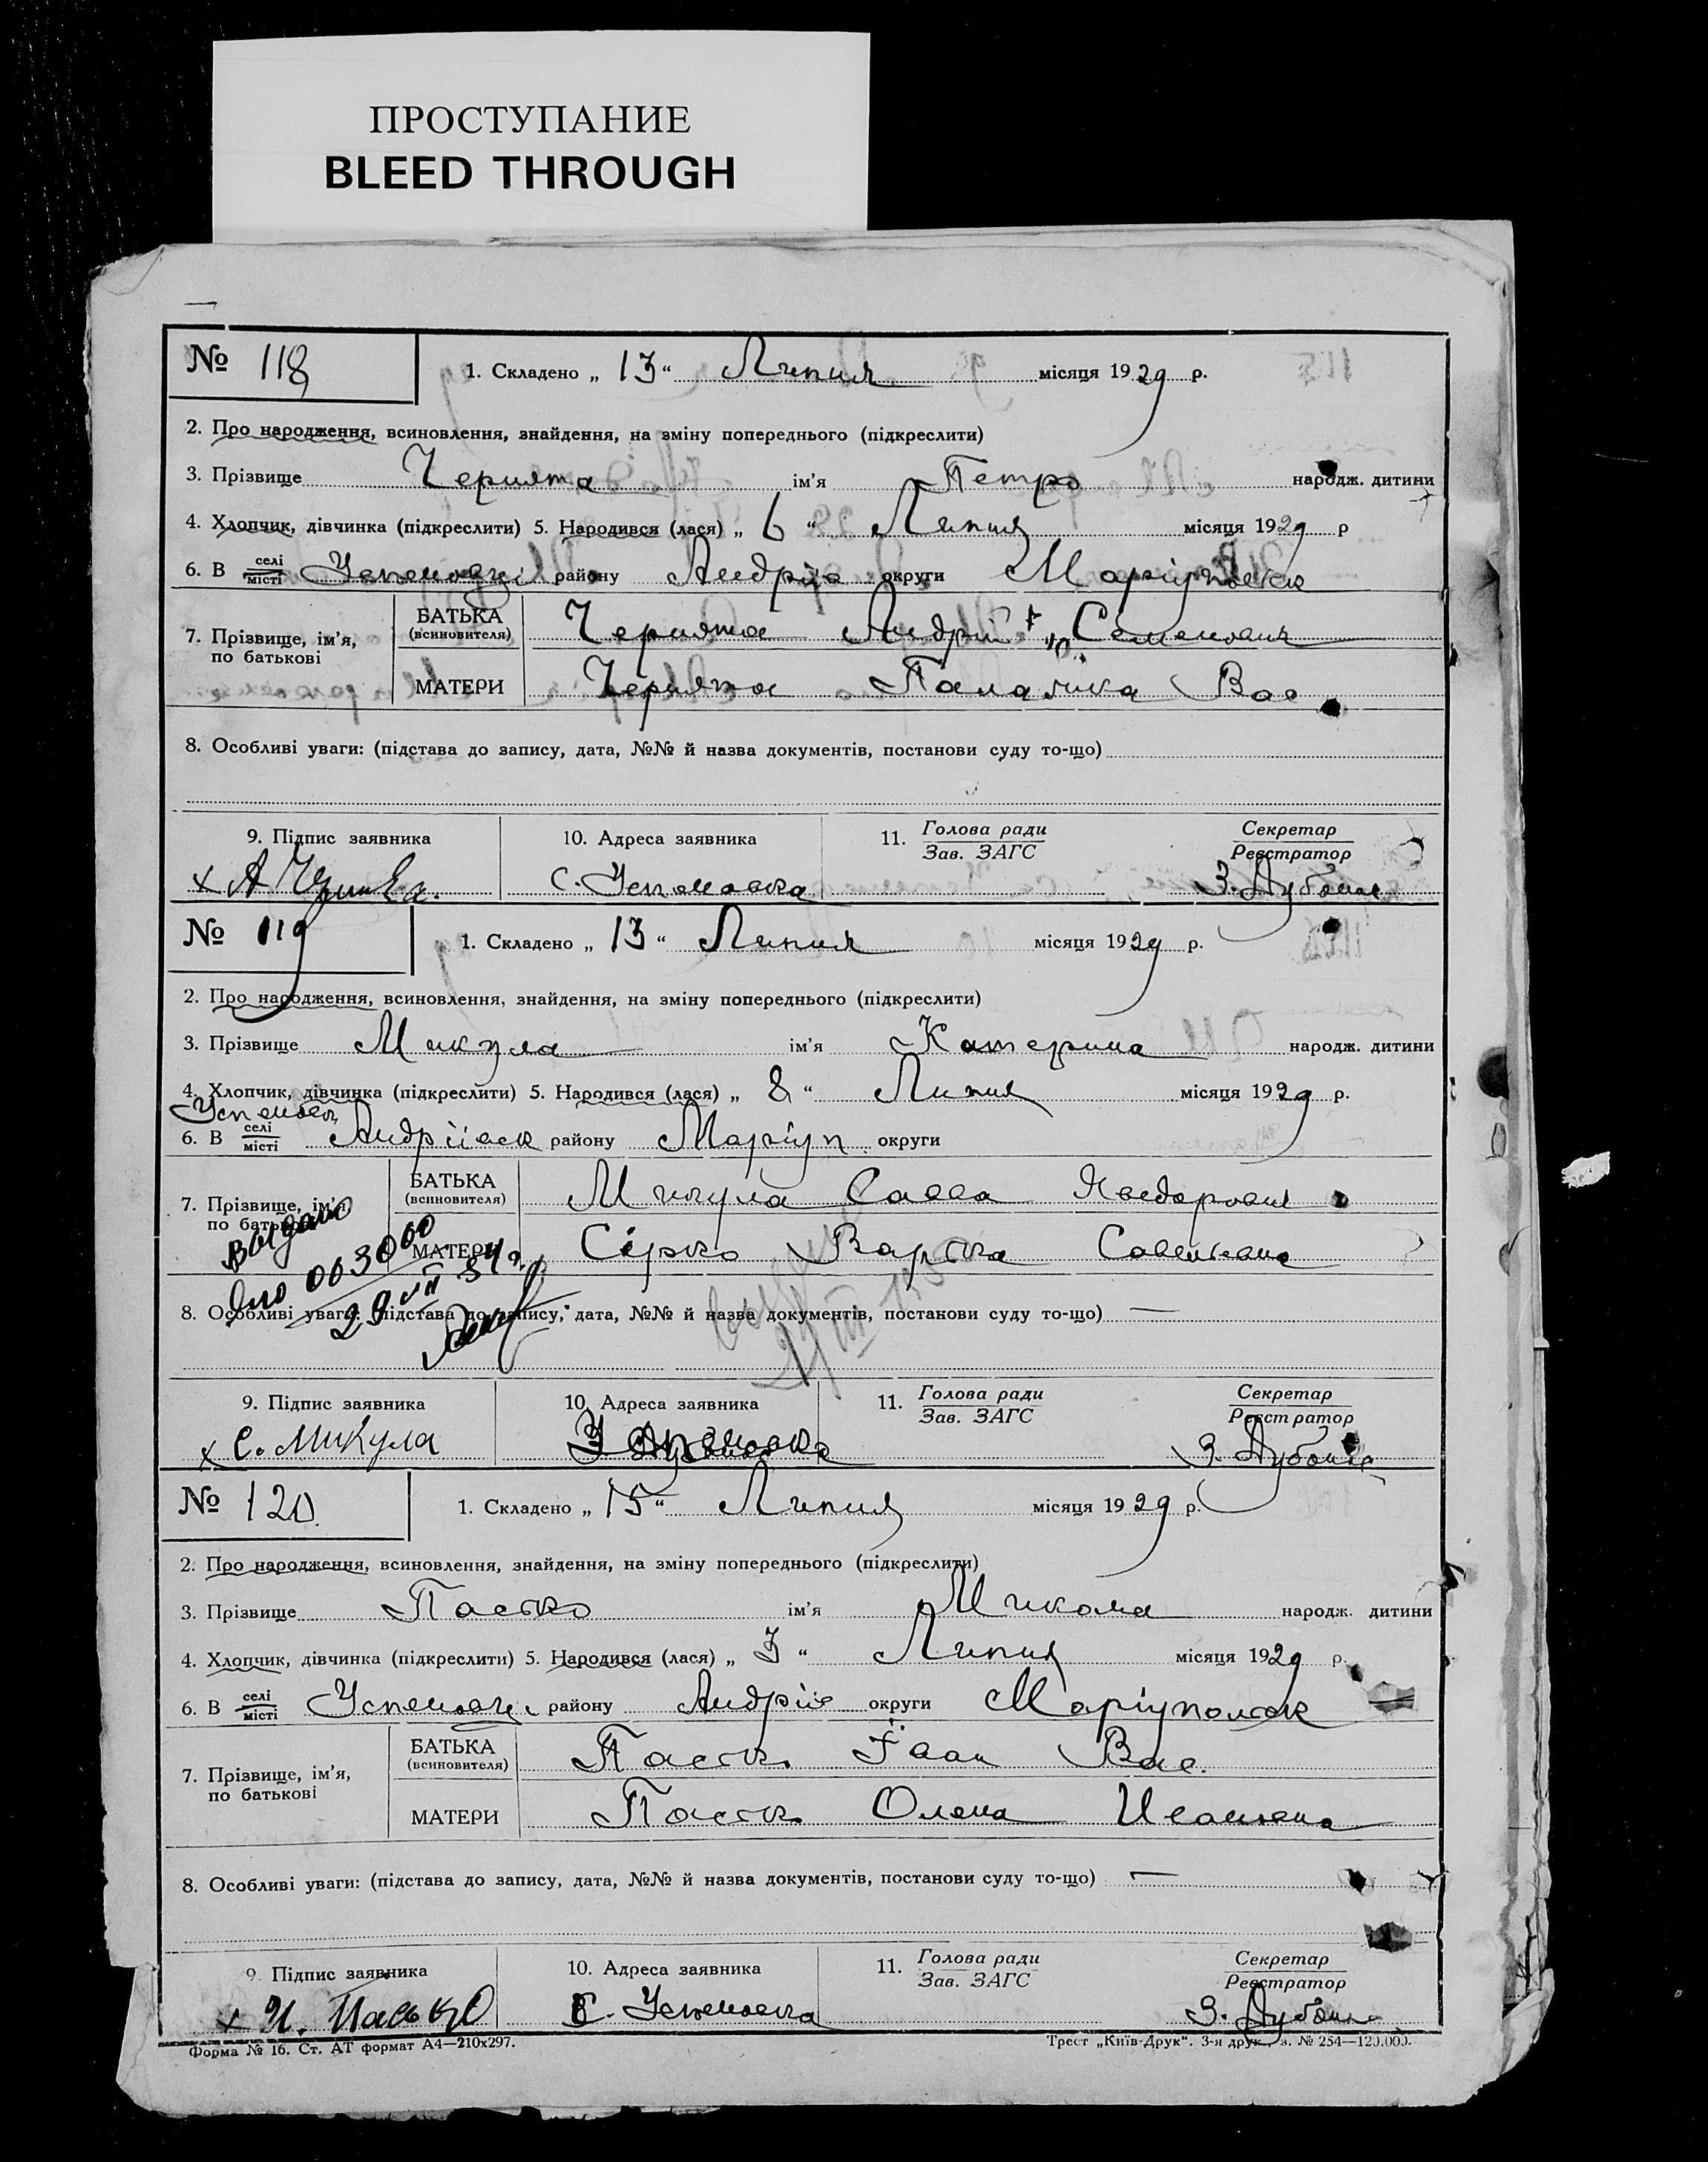 ПРОСТУПАНИЕ
BLEED THROUGH
№ 118 1. Складено „ 13 “ Липня місяця 1929 р.
2. Про народження, всиновлення, знайдення, на зміну попереднього (підкреслити)
3. Прізвище Чернята ім'я Петро народж. дитини
4. Хлопчик, дівчинка (підкреслити) 5. Народився (лася) „ 6 “ Липня місяця 1929 р
6. В селі місті Успеновці району Андріїв округи Маріупольск
7. Прізвище, ім'я, по батькові БАТЬКА (всиновителя) Чернята Андрій Семенович
МАТЕРИ Чернята Палажка Вас
8. Особливі уваги: (підстава до запису, дата, №№ й назва документів, постанови суду то-що)
9. Підпис заявника 10. Адреса заявника 11. Голова ради Зав. ЗАГС Секретар Реєстратор
х А с. Успеновка З.
№ 119 1. Складено „ 13 “ Липня місяця 1929 р.
2. Про народження, всиновлення, знайдення, на зміну попереднього (підкреслити)
3. Прізвище Микула ім'я Катерина народж. дитини
4. Хлопчик, дівчинка (підкреслити) 5. Народився (лася) „ 8 “ Липня місяця 1929 р.
6. В селі місті Андріївск району Маріуп округи
7. Прізвище, ім'я, по батькові БАТЬКА (всиновителя) Микула Савва
МАТЕРИ Сірко Варька Савельевна
Выдано
003000
29 VII 34 г.
8. Особливі уваги: (підстава до запису, дата, №№ й назва документів, постанови суду то-що) —
9. Підпис заявника 10. Адреса заявника 11. Голова ради Зав. ЗАГС Секретар Реєстратор
х С. Микула Успеновка З.
№ 120 1. Складено „ 15 “ Липня місяця 1929 р.
2. Про народження, всиновлення, знайдення, на зміну попереднього (підкреслити)
3. Прізвище Пасько ім'я Микола народж. дитини
4. Хлопчик, дівчинка (підкреслити) 5. Народився (лася) „ 3 “ Липня місяця 1929 р.
6. В селі місті Успеновці району Андріїв округи Маріупольск
7. Прізвище, ім'я, по батькові БАТЬКА (всиновителя) Пасько Іван Вас.
МАТЕРИ Пасько Олена Ивановна
8. Особливі уваги: (підстава до запису, дата, №№ й назва документів, постанови суду то-що) —
9. Підпис заявника 10. Адреса заявника 11. Голова ради Зав. ЗАГС Секретар Реєстратор
х И. Пасько С. Успеновка З.
Форма № 16. Ст. АТ формат А4—210х297. Трест „Київ-Друк“. 3-я друк., з. № 254—120.000.